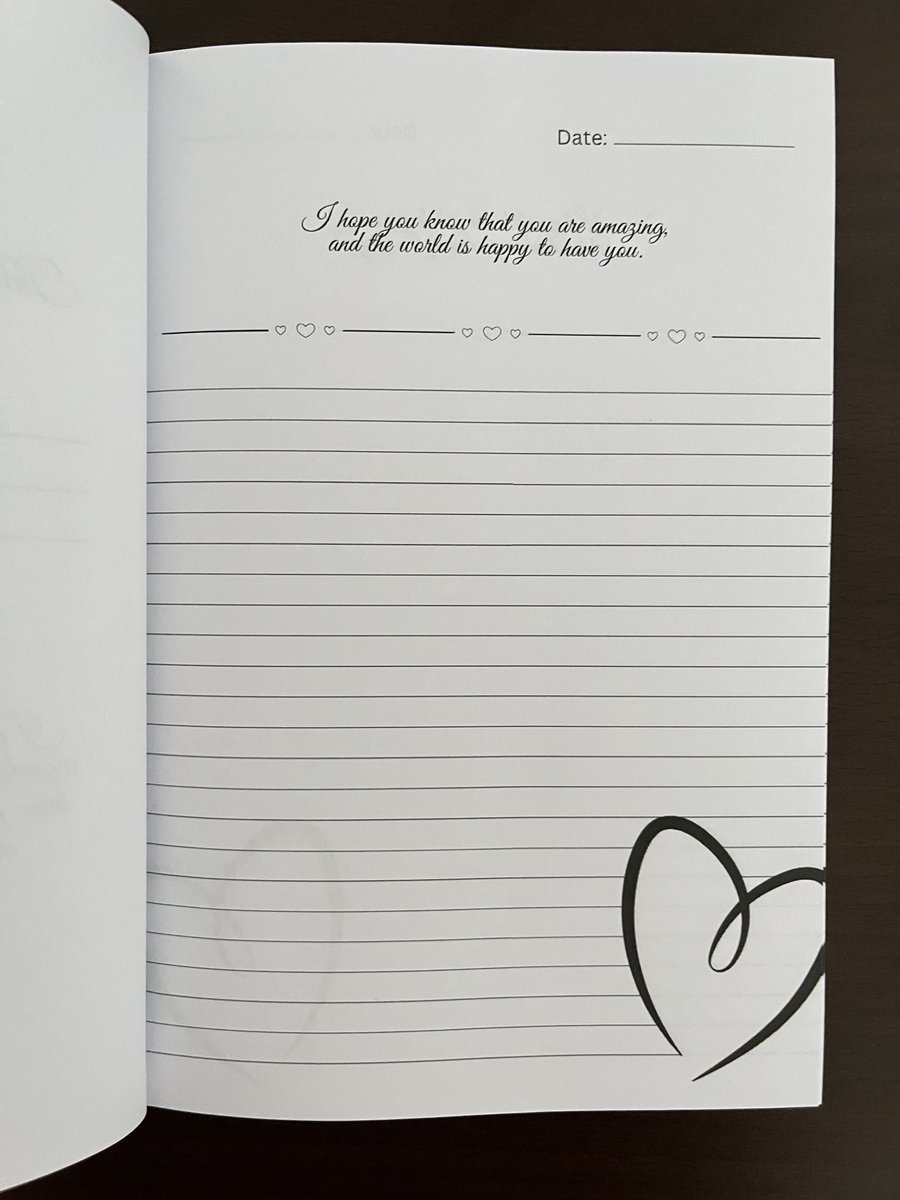 Date:
I hope you know that you are amazing,
and the world is happy to have you.